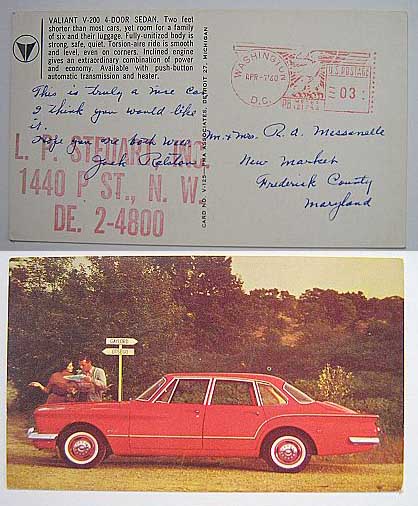 VALIANT V-200 4-DOOR SEDAN. Two feet
shorter than most cars, yet room for a family
of six and their luggage. Fully-unitized body is
strong, safe, quiet. Torsion-aire ride is smooth
and level, even on corners. Inclined engine
gives an extraordinary combination of power
and economy. Available with push-button
automatic transmission and heater.
This is truly a nice car
I think you would like
it.
Hope you are both well.
Jack
L. P. STEUART, INC.
1440 P ST., N. W.
DE. 2-4800
CARD NO. V-125 ASSOCIATES, DETROIT 27, MICHIGAN
WASHINGTON
APR
D.C.
U.S. POSTAGE
03
Mr & Mrs. R. A. Messanelle
New Market
Frederick County
Maryland
GAYLORD
OTSEGO